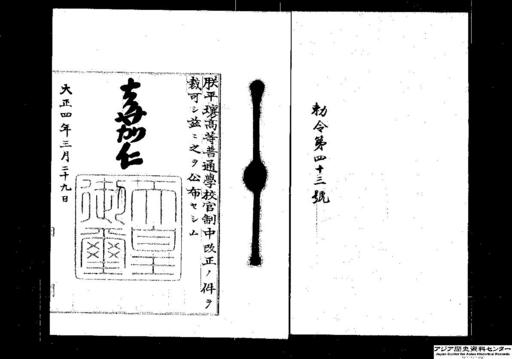 勅令第四十三號
朕平壤高等普通學校官制中改正ノ件ヲ
裁可シ茲ニ之ヲ公布セシム
嘉仁
天皇
御璽
大正四年三月二十九日
アジア歴史資料センター
Japan Center for Asian Historical Records